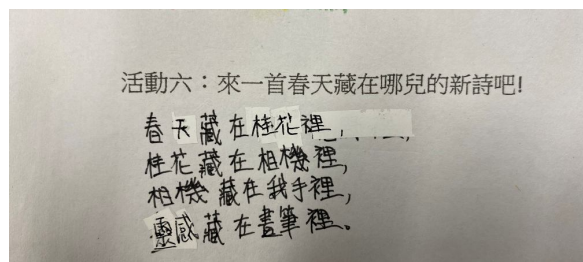 活動六：來一首春天藏在哪兒的新詩吧!
春天藏在桂花裡，
桂花藏在相機裡，
相機藏在我手裡，
靈感藏在畫筆裡。